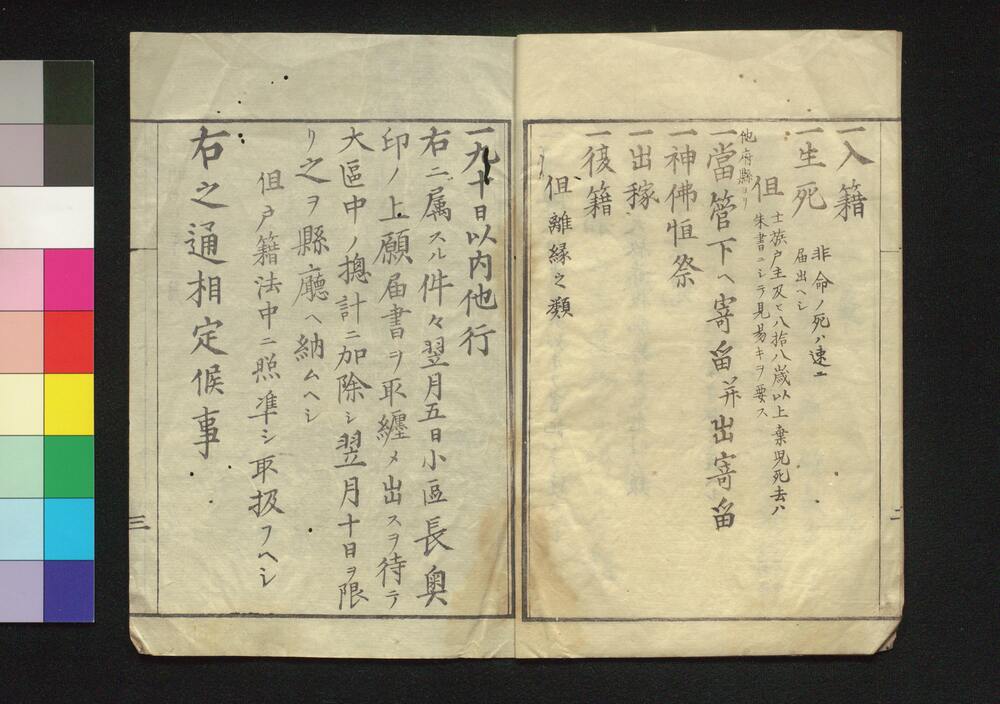 一入籍
一生死
非命ノ死ハ速ニ
届出ヘシ
但
士族戸主及ヒ八拾八歳以上棄児死去ハ
朱書ニシテ見易キヲ要ス
他府縣ヨリ
一當管下ヘ寄留并出寄留
一神佛恒祭
一出稼
一復籍
但離縁之類
一九十日以内他行
右ニ属スル件々翌月五日小區長奥
印ノ上願届書ヲ取纏メ出スヲ待テ
大區中ノ摠計ニ加除シ翌月十日ヲ限
リ之ヲ縣廳ヘ納ムヘシ
但戸籍法中ニ照準シ取扱フヘシ
右之通相定候事
三